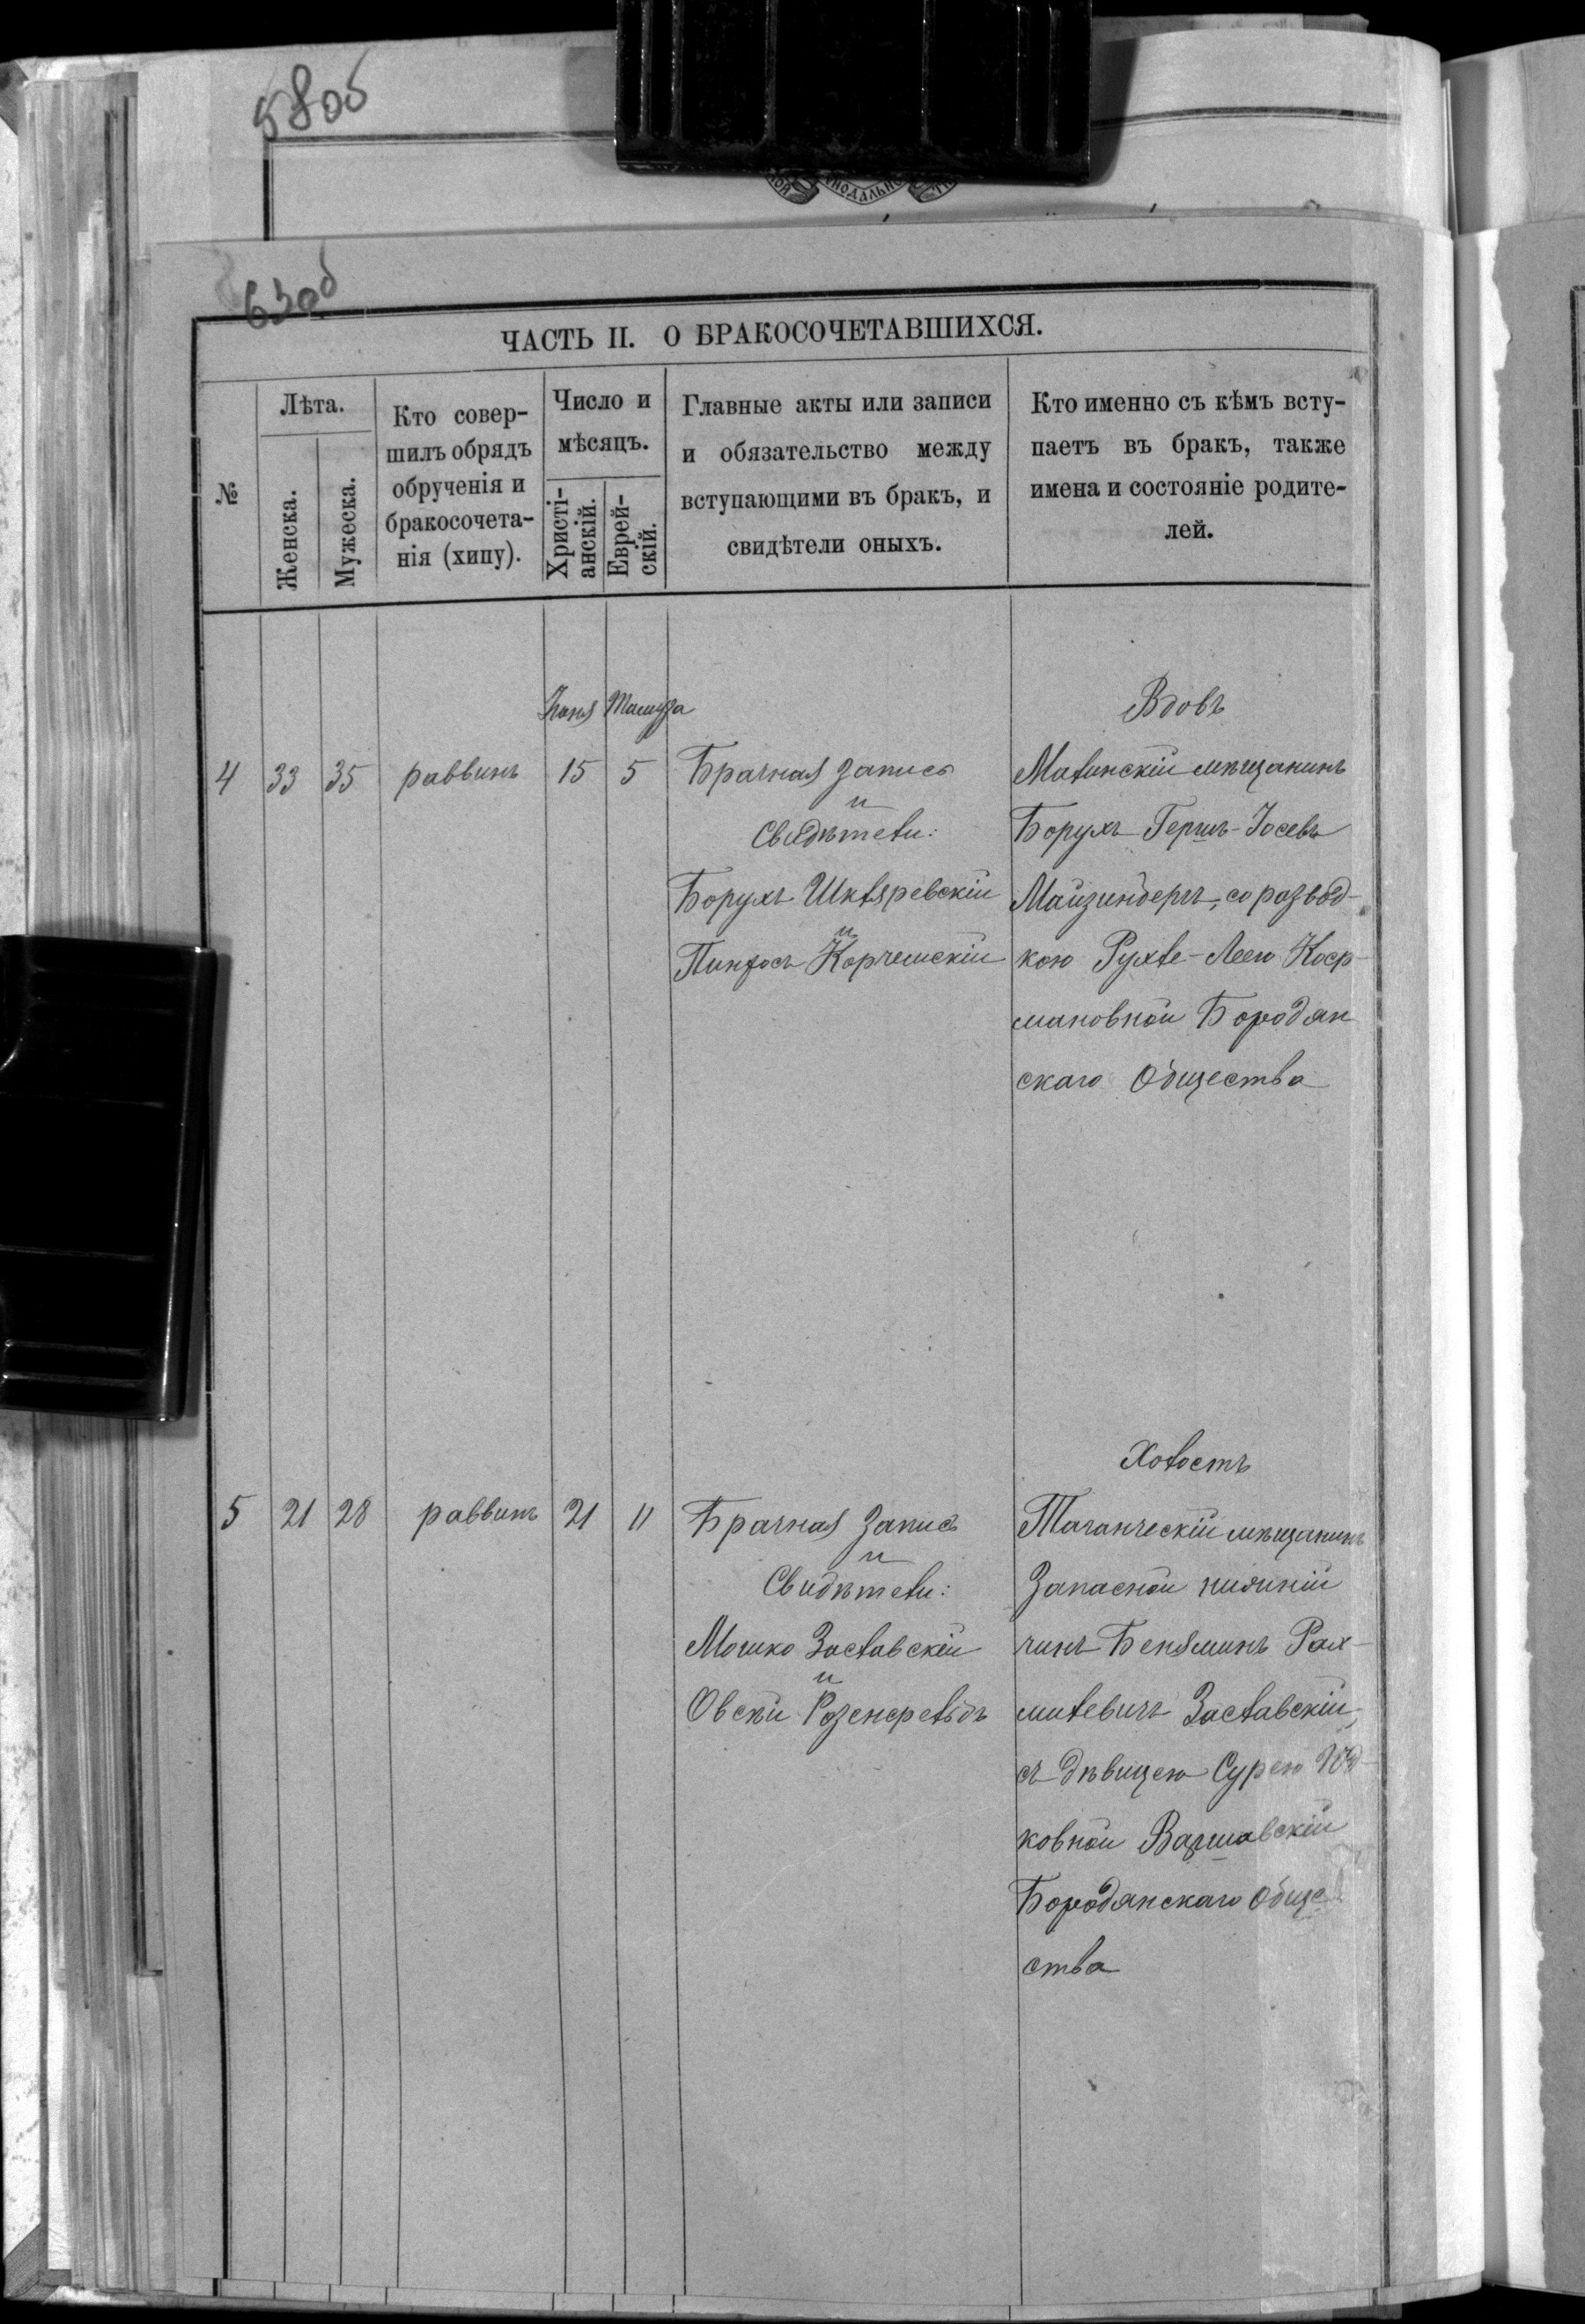 58об
63об
ЧАСТЬ II. О БРАКОСОЧЕТАВШИХСЯ.
№
Лѣта.
Женска.
Мужеска.
Кто совер-
шилъ обрядъ
обрученія и
бракосочета-
нія (хипу).
Число и
мѣсяцъ.
Христі-
анскій.
Еврей-
скій.
Главные акты или записи
и обязательство между
вступающими въ бракъ, и
свидѣтели оныхъ.
Кто именно съ кѣмъ всту-
паетъ въ бракъ, также
имена и состояніе родите-
лей.
Іюня Тамуза
4 33 35 раввинъ 15 5
Брачная запись
и
Свидѣтели:
Борухъ Шкляревскій
и
Пинхосъ Корчемскій
Вдовъ
Малинскій мѣщанинъ
Борухъ Гершъ-Іосевъ
Майзиндеръ, со развод-
кою Рухле-Леею
мановной Бородян
скаго Общества
5 21 28 раввинъ 21 11
Брачная запись
и
Свидѣтели:
Мошко Заславскій
и
Овсѣй Розенфельдъ
Холостъ
Таганческій мѣщанинъ
Запасной нижній
чинъ Беняминъ Рах-
милевичъ Заславскій,
съ дѣвицею Сурею
ковной Варшавскій
Бородянскаго Обще
ства